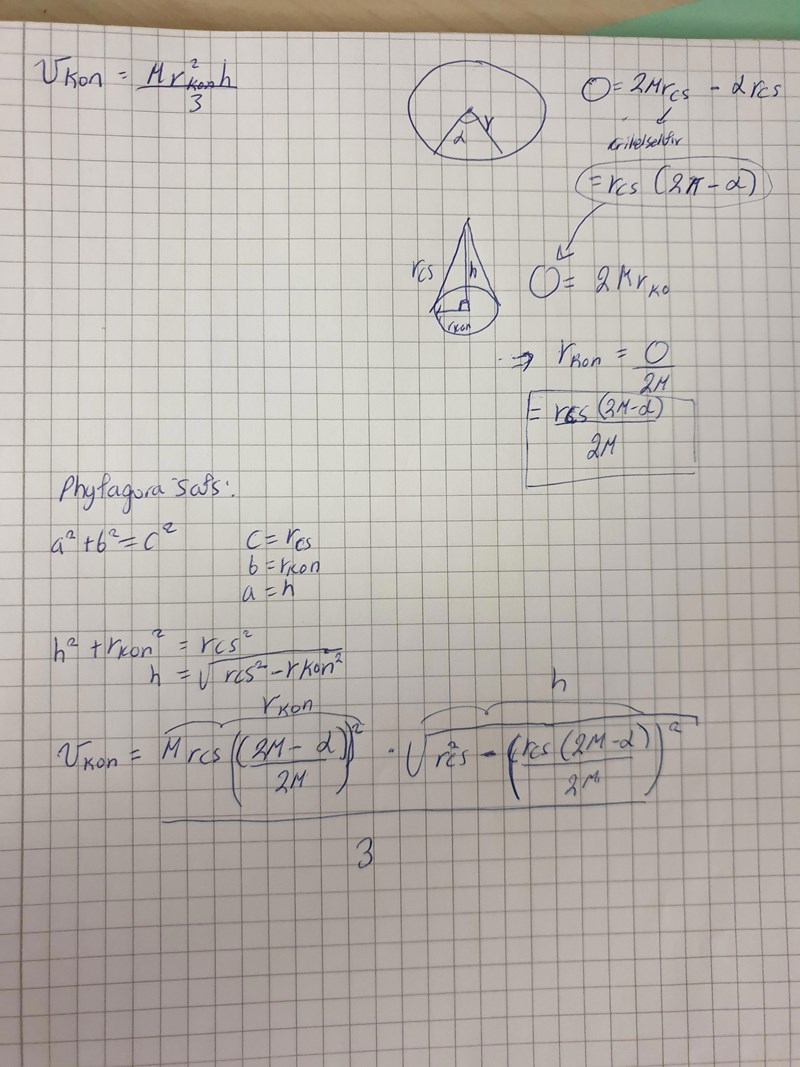 V_kon = πr²_kon h / 3
O = 2πr_cs - αr_cs
= r_cs (2π - α)
α r
r_cs h
r_kon
O = 2πr_ko
⇒ r_kon = O / 2π
= r_cs (2π-α) / 2π
Phytagora sats:
a² + b² = c²
c = r_cs
b = r_kon
a = h
h² + r_kon² = r_cs²
h = √(r_cs² - r_kon²)
r_kon h
V_kon = π r_cs ((2π - α) / 2π)² · √(r²_cs - (r_cs (2π-α) / 2π)²) / 3